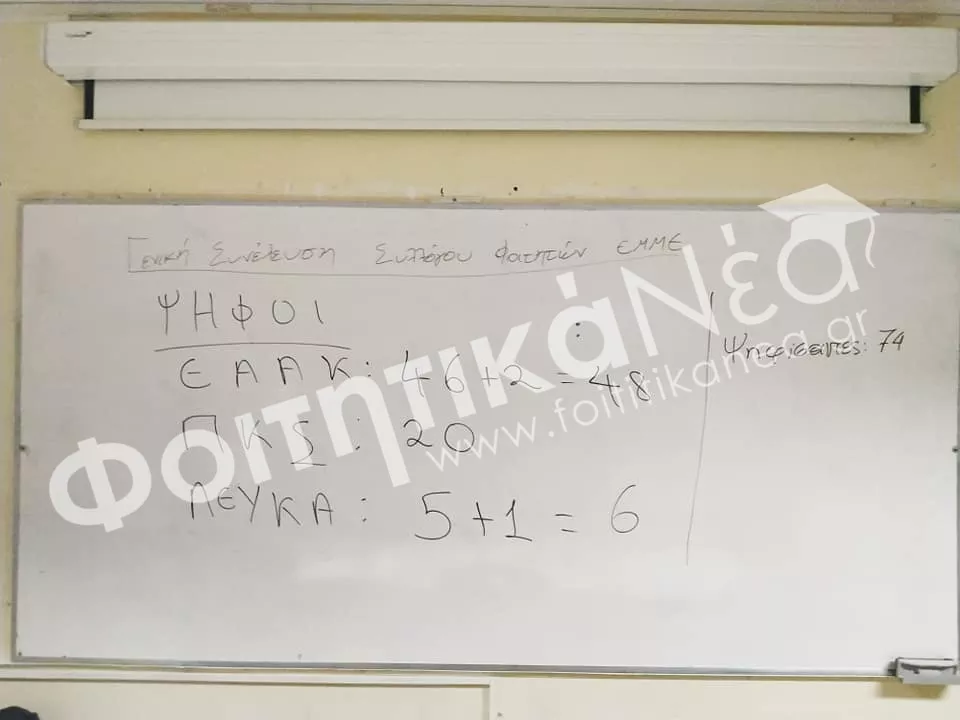 Γενική Συνέλευση Συλλόγου Φοιτητών ΕΜΜΕ
ΨΗΦΟΙ
ΕΑΑΚ: 46+2 = 48
ΠΚΣ: 20
ΛΕΥΚΑ: 5+1 = 6
Ψηφίσαντες: 74
ΦοιτητικάΝέα
www.foititikanea.gr